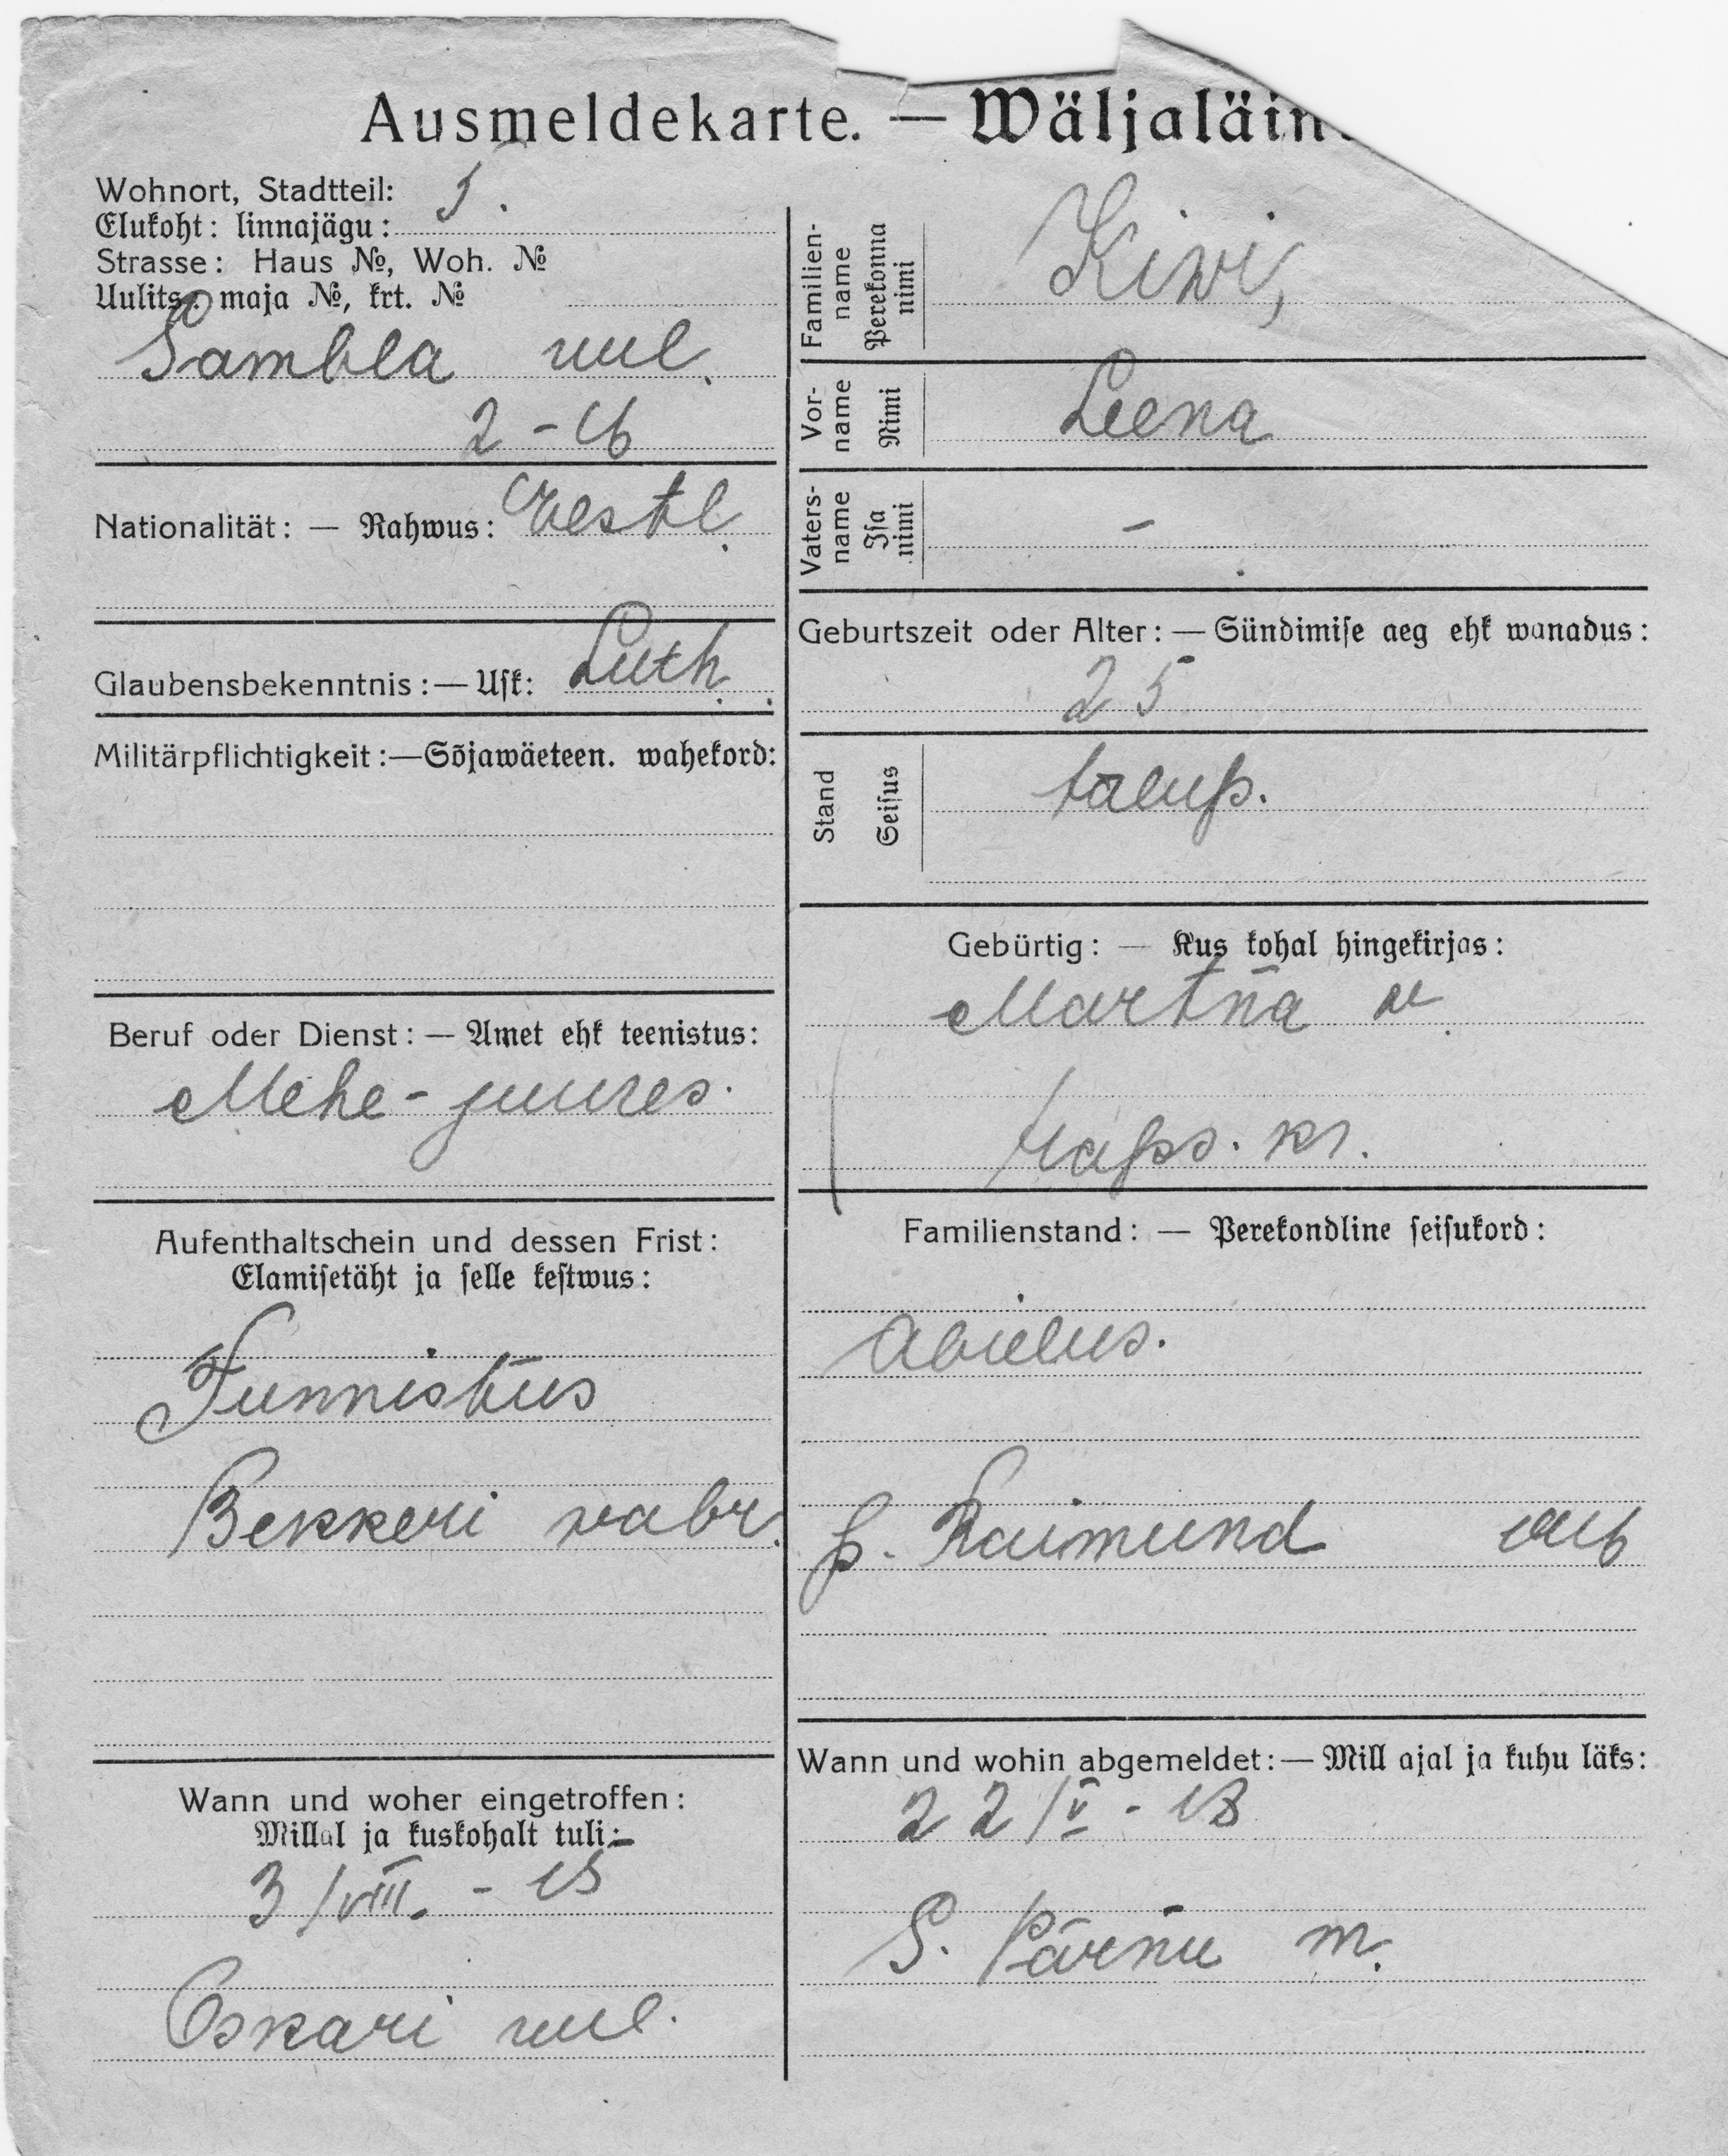 Ausmeldekarte. — Wäljaläin
Wohnort, Stadtteil: 5.
Elukoht: linnajägu:
Strasse: Haus №, Woh. №
Uulits: maja №, krt. №
Sambla uul.
2-16
Nationalität: — Rahwus: Eestl.
Glaubensbekenntnis: — Usk: Luth.
Militärpflichtigkeit: — Sõjawäeteen. wahekord:
Beruf oder Dienst: — Amet ehk teenistus:
Mehe-juures.
Aufenthaltschein und dessen Frist:
Elamisetäht ja selle kestwus:
Tunnistus
Bekkeri vabr.
Wann und woher eingetroffen:
Millal ja kuskohalt tuli:
3/VIII. - 15
Oskari uul.
Familien-name Perekonna nimi Kiwi,
Vor-name Nimi Leena
Vaters-name Isa nimi -
Geburtszeit oder Alter: — Sündimise aeg ehk wanadus:
25
Stand Seisus talup.
Gebürtig: — Kus kohal hingekirjas:
Martna v.
Haps. kr.
Familienstand: — Perekondline seisukord:
abielus.
p. Raimund
Wann und wohin abgemeldet: — Mill ajal ja kuhu läks:
22/V - 18
S. Pärnu m.